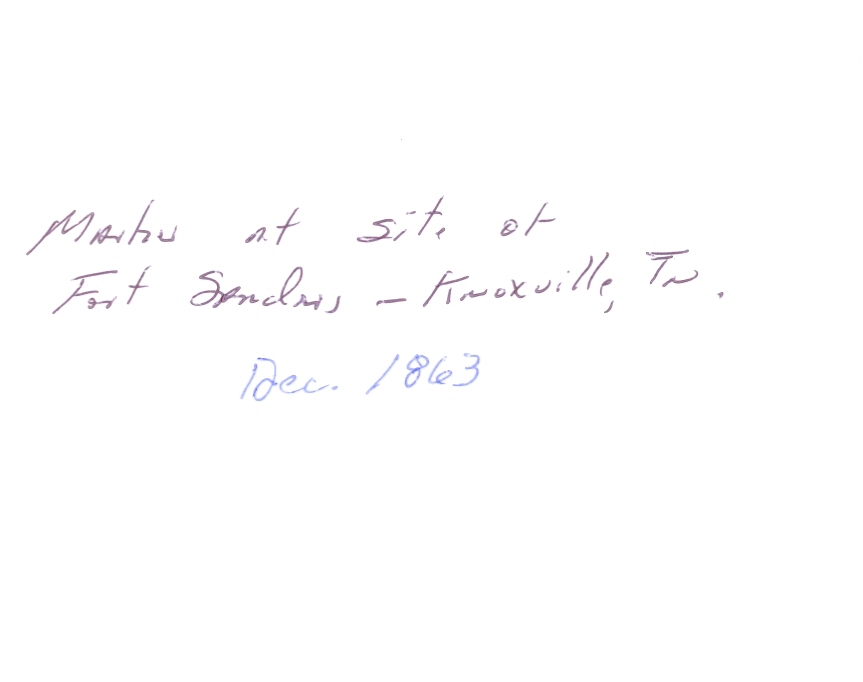 Marker at site of
Fort Sanders - Knoxville, Tn.
Dec. 1863